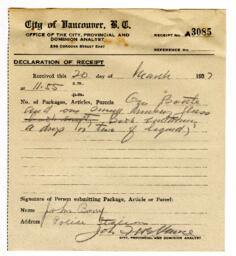 City of Vancouver, B.C.
OFFICE OF THE CITY, PROVINCIAL AND DOMINION ANALYST
236 CORDOVA STREET EAST
RECEIPT No. A3085
REFERENCE No.
DECLARATION OF RECEIPT
Received this 20 day of March 1937
at 11:55
No. of Packages, Articles, Parcels One Bottle
and one small glass
a drop or two of liquid)
Signature of Person submitting Package, Article or Parcel:
Name John
Address Police Station
John
CITY, PROVINCIAL AND DOMINION ANALYST